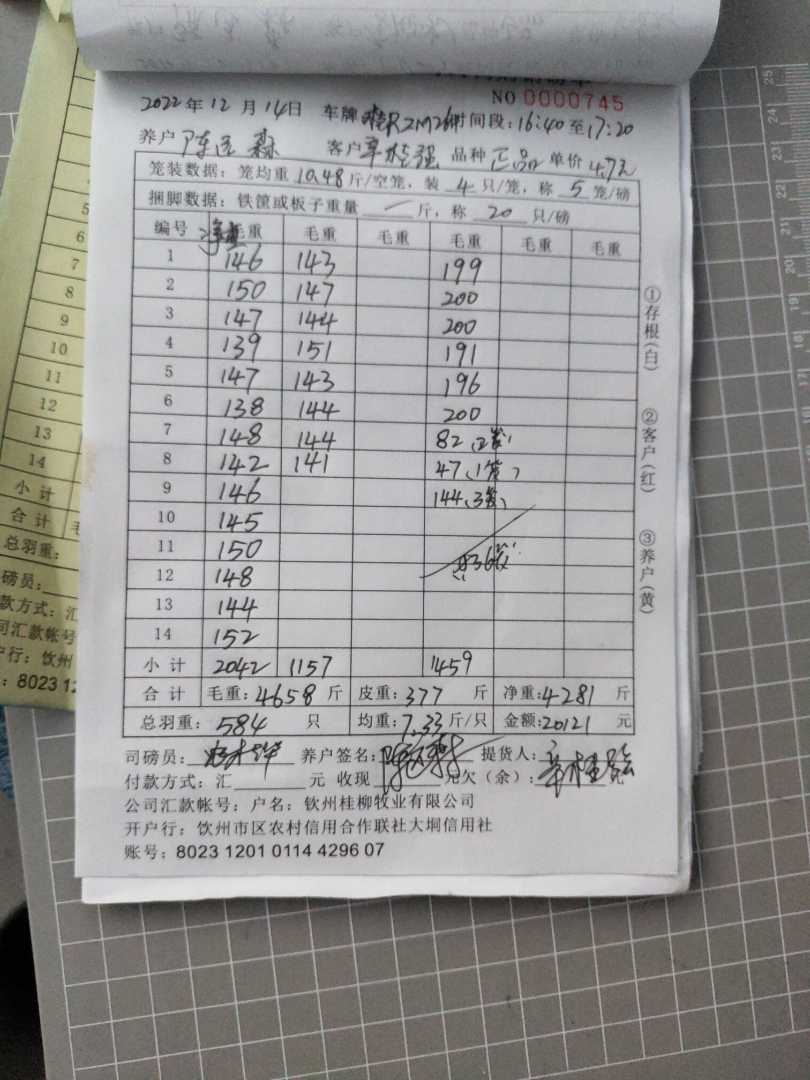 NO 0000745
2022年12月14日 车牌 时间段:16:40至17:20
养户 陈 森 客户 辛桂强 品种 正品 单价 4.7元
笼装数据:笼均重 10.48 斤/空笼,装 4 只/笼,称 5 笼/磅
捆脚数据:铁筐或板子重量 一 斤,称 20 只/磅
编号 净重 毛重 毛重 毛重 毛重 毛重 毛重
1 146 143 199
2 150 147 200
3 147 144 200
4 139 151 191
5 147 143 196
6 138 144 200
7 148 144 82(2笼)
8 142 141 47(1笼)
9 146 144(3笼)
10 145
11 150 共36笼
12 148
13 144
14 152
小计 2042 1157 1459
合计 毛重:4658 斤 皮重:377 斤 净重:4281 斤
总羽重:584 只 均重:7.33 斤/只 金额:20121 元
司磅员: 养户签名: 提货人:辛桂强
付款方式:汇 元 收现 元欠(余):
公司汇款帐号:户名:钦州桂柳牧业有限公司
开户行:饮州市区农村信用合作联社大垌信用社
账号:8023 1201 0114 4296 07
①存根(白)
②客户(红)
③养户(黄)
5
6
7
8
9
10
11
12
13
14
小计
合计 毛
总羽重:
磅员:
款方式:汇
司汇款帐号
户行:饮州
:8023 12